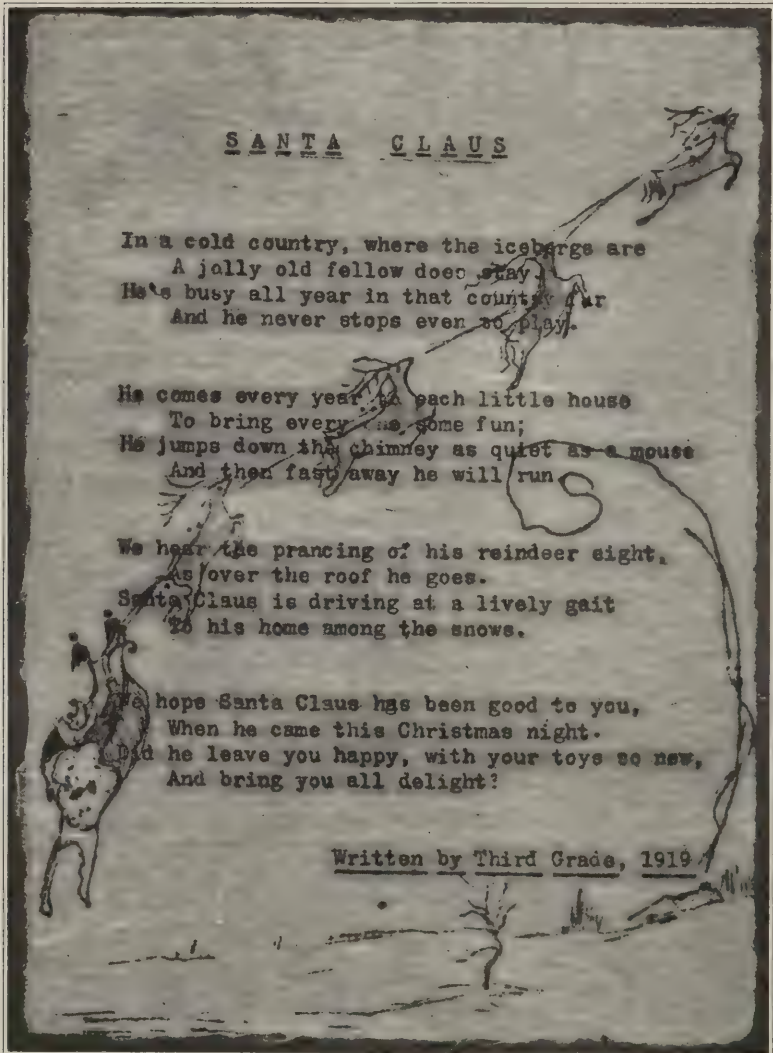 SANTA CLAUS
In a cold country, where the icebergs are
A jolly old fellow does stay.
He's busy all year in that country far
And he never stops even to play.
He comes every year to each little house
To bring every one some fun;
He jumps down the chimney as quiet as a mouse
And then fast away he will run.
We hear the prancing of his reindeer eight,
As over the roof he goes.
Santa Claus is driving at a lively gait
To his home among the snows.
We hope Santa Claus has been good to you,
When he came this Christmas night.
Did he leave you happy, with your toys so new,
And bring you all delight?
Written by Third Grade, 1919